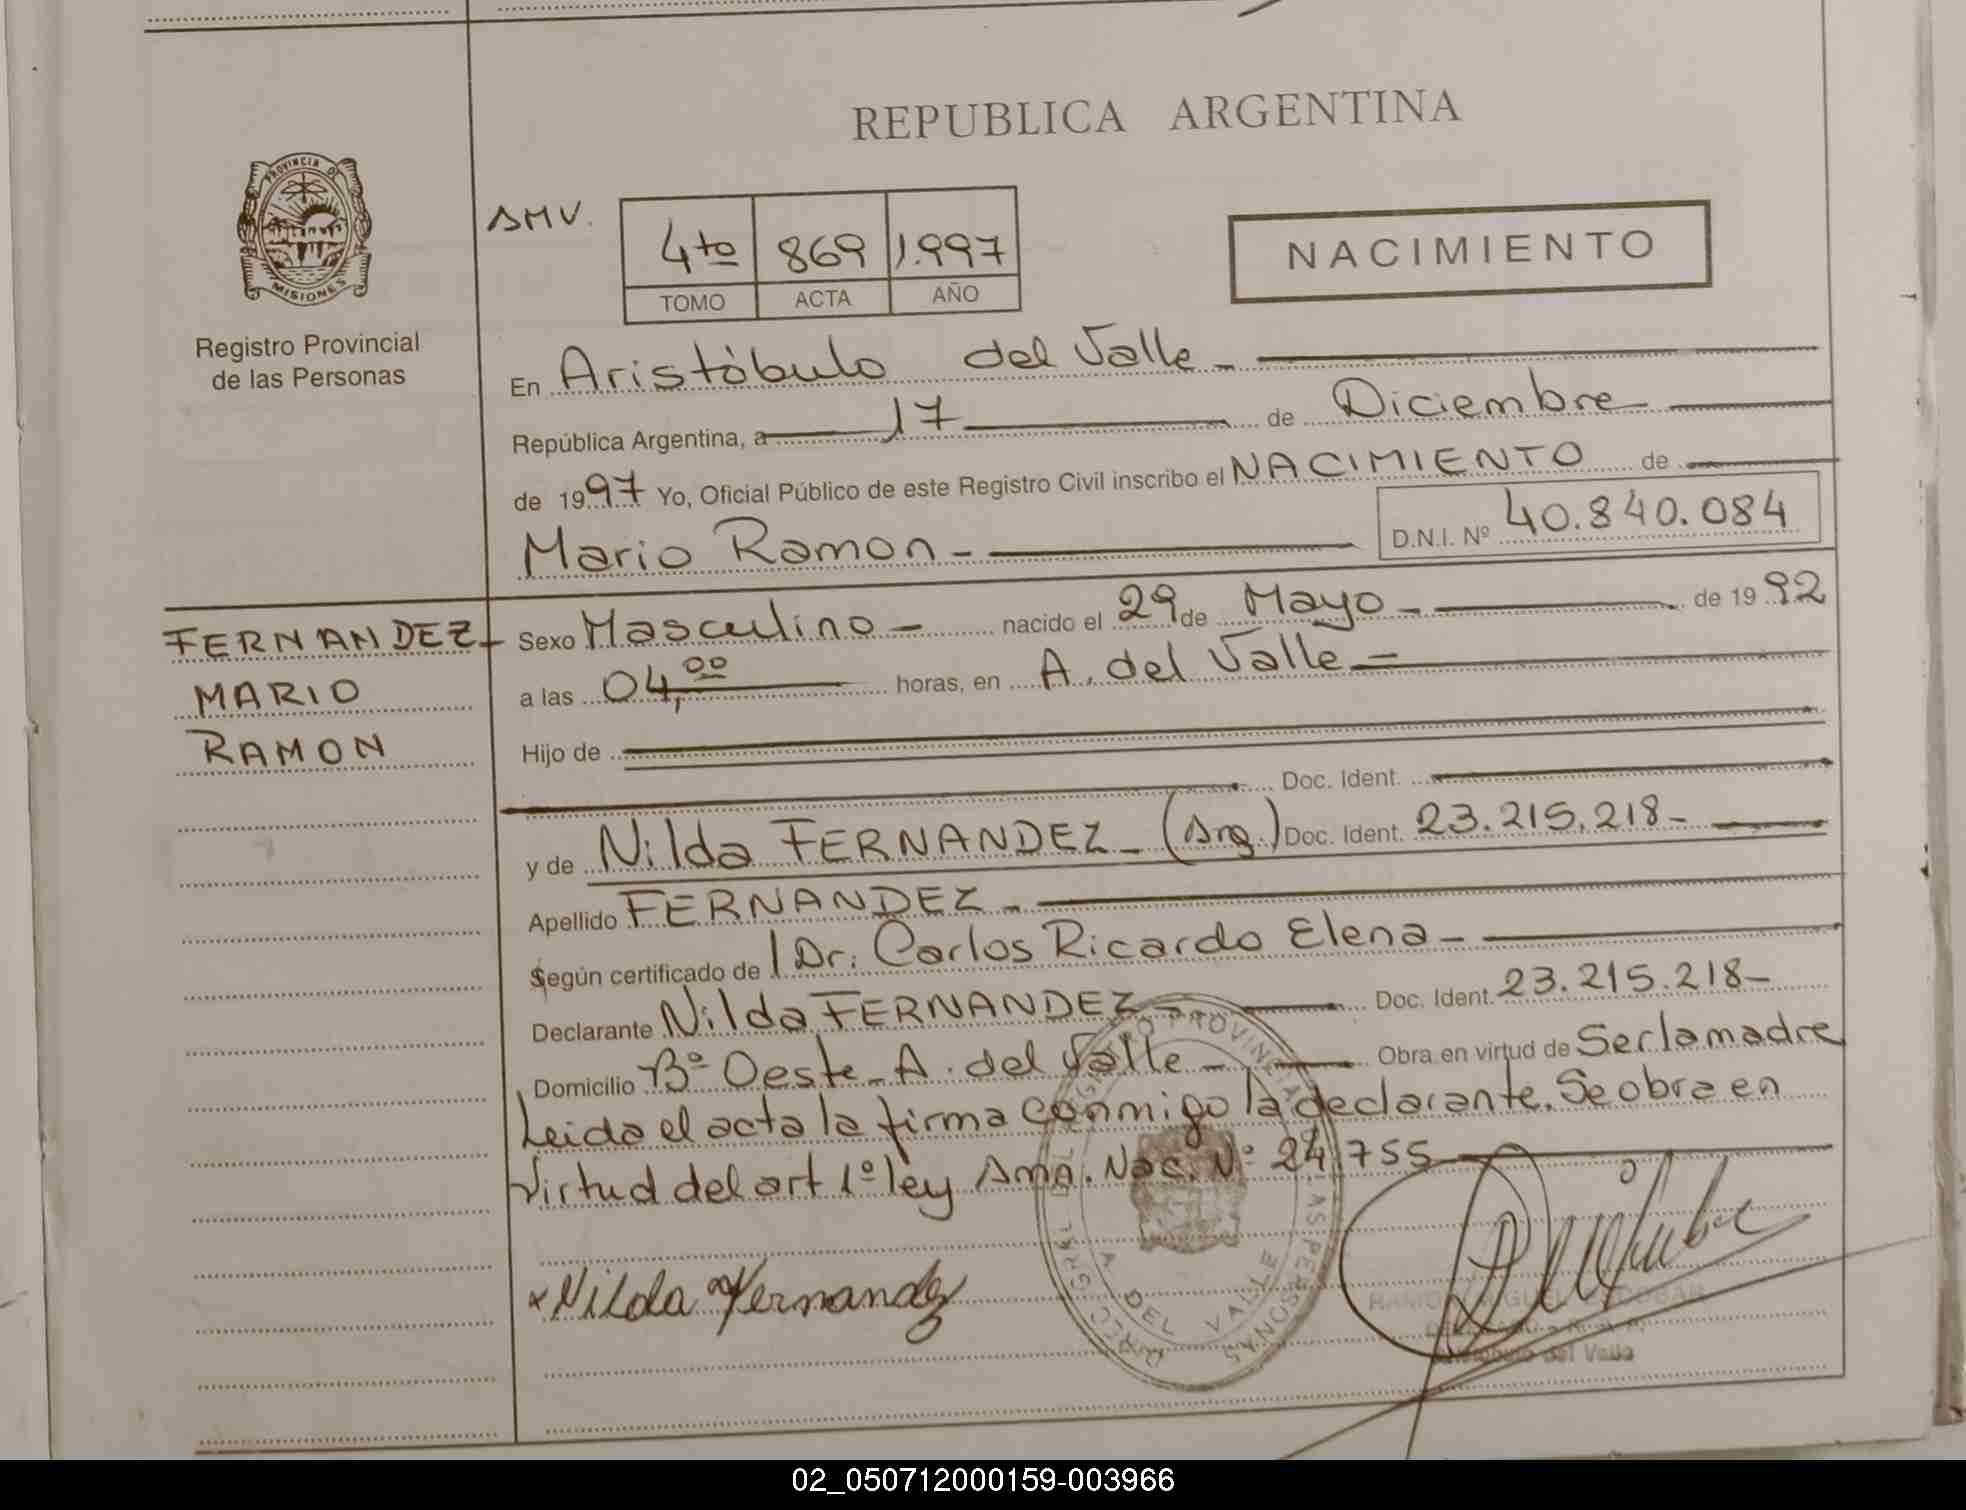 REPUBLICA ARGENTINA
PROVINCIA DE
MISIONES
Registro Provincial
de las Personas
AMV.
4to 869 1.997
TOMO ACTA AÑO
NACIMIENTO
En Aristóbulo del Valle -
República Argentina, a 17 de Diciembre
de 1997 Yo, Oficial Público de este Registro Civil inscribo el NACIMIENTO de
Mario Ramon - D.N.I. Nº 40.840.084
FERNANDEZ-
MARIO
RAMON
Sexo Masculino - nacido el 29 de Mayo - de 1992
a las 04,00 horas, en A. del Valle -
Hijo de
Doc. Ident.
y de Nilda FERNANDEZ - (Arg.) Doc. Ident. 23.215.218-
Apellido FERNANDEZ -
Según certificado de Dr. Carlos Ricardo Elena -
Declarante Nilda FERNANDEZ - Doc. Ident. 23.215.218-
Domicilio Bº Oeste - A. del Valle - Obra en virtud de Ser la madre
Leida el acta la firma conmigo la declarante. Se obra en
Virtud del art 1º ley Amn. Nac. Nº 24.755
x Nilda Fernandez
A DEL VALLE
RAMON MIGUEL ESCOBAR
Aristobulo del Valle
02_050712000159-003966